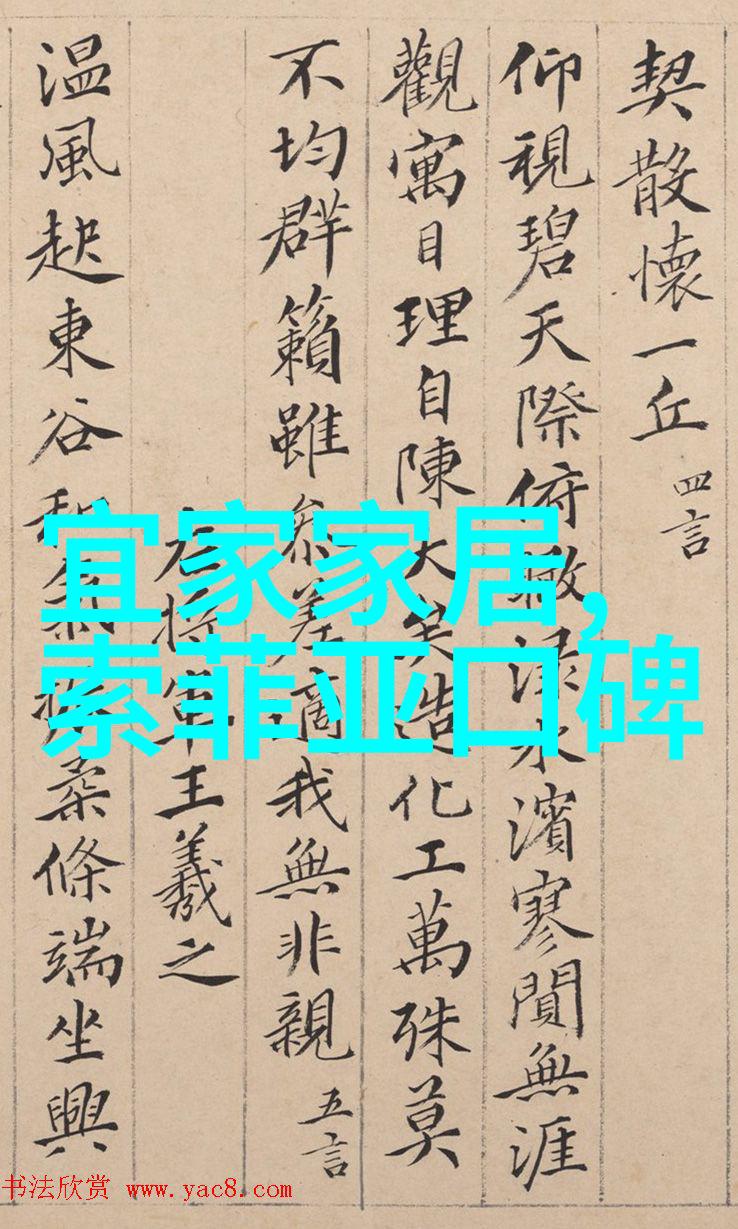 契散懷一丘 四言
仰視碧天際俯淥水濱寥閴無涯
觀寓目理自陳大矣造化工萬殊莫
不均群籟雖參差適我無非親 五言
右將軍王羲之
温風起東谷和氣振柔條端坐興
宜家家居,
索菲亚口碑
书法欣赏 www.yac8.com